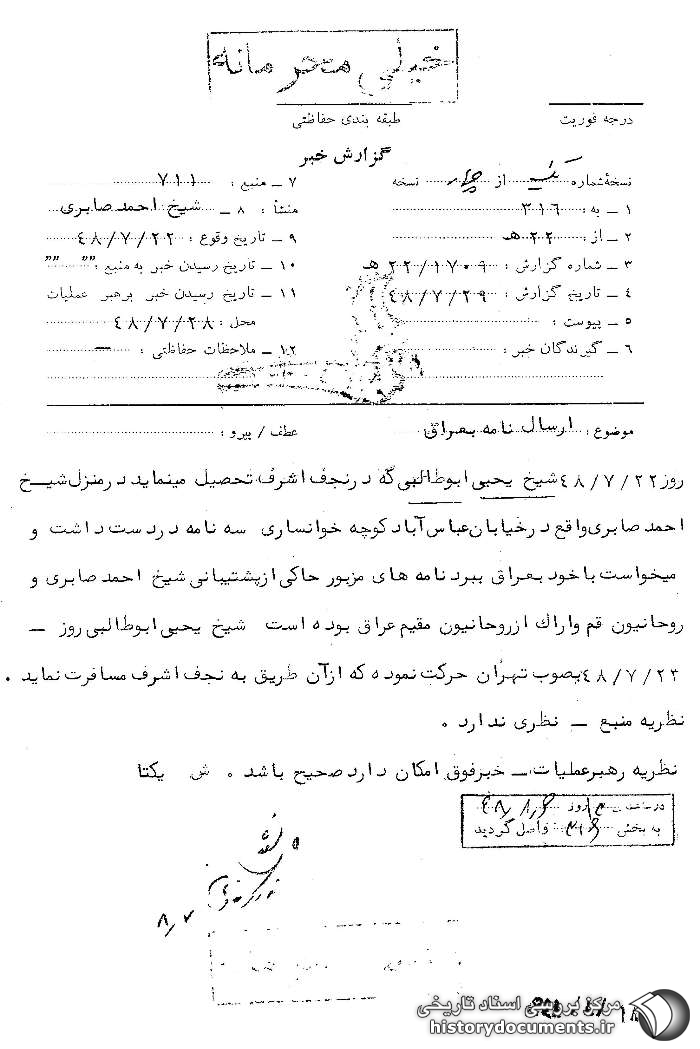 خیلی محرمانه
درجه فوریت
طبقه بندی حفاظتی
گزارش خبر
نسخهٔ شماره یک از چهار نسخه
۱ ــ به : ۳۱۶
۲ ــ از : ۲۲ هـ
۳ ــ شماره گزارش : ۲۲/۱۷۰۹ هـ
۴ ــ تاریخ گزارش : ۴۸/۷/۲۹
۵ ــ پیوست :
۶ ــ گیرندگان خبر :
۷ ــ منبع : ۷۱۱
۸ ــ منشأ : شیخ احمد صابری
۹ ــ تاریخ وقوع : ۴۸/۷/۲۲
۱۰ ــ تاریخ رسیدن خبر به منبع : "" ""
۱۱ ــ تاریخ رسیدن خبر برهبر عملیات
محل : ۴۸/۷/۲۸
۱۲ ــ ملاحظات حفاظتی : ــ
موضوع : ارسال نامه بعراق
عطف / پیرو :
روز ۴۸/۷/۲۲ شیخ یحیی ابوطالبی که در نجف اشرف تحصیل مینماید در منزل شیخ
احمد صابری واقع در خیابان عباس آباد کوچه خوانساری سه نامه در دست داشت و
میخواست با خود بعراق ببرد نامه های مزبور حاکی از پشتیبانی شیخ احمد صابری و
روحانیون قم واراك از روحانیون مقیم عراق بوده است شیخ یحیی ابوطالبی روز ــ
۴۸/۷/۲۳ بصوب تهران حرکت نموده که از آن طریق به نجف اشرف مسافرت نماید .
نظریه منبع ــ نظری ندارد .
نظریه رهبر عملیات ــ خبر فوق امکان دارد صحیح باشد . ش یکتا
در ساعت روز ۴۸/۸/۶
به بخش ۳۱۶ واصل گردید
۸/۷
مرکز بررسی اسناد تاریخی
historydocuments.ir